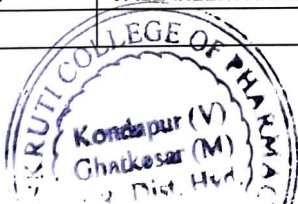 KRUTI COLLEGE OF PHARMAC
Kondapur (V)
Ghatkesar (M)
Dist. Hyd.